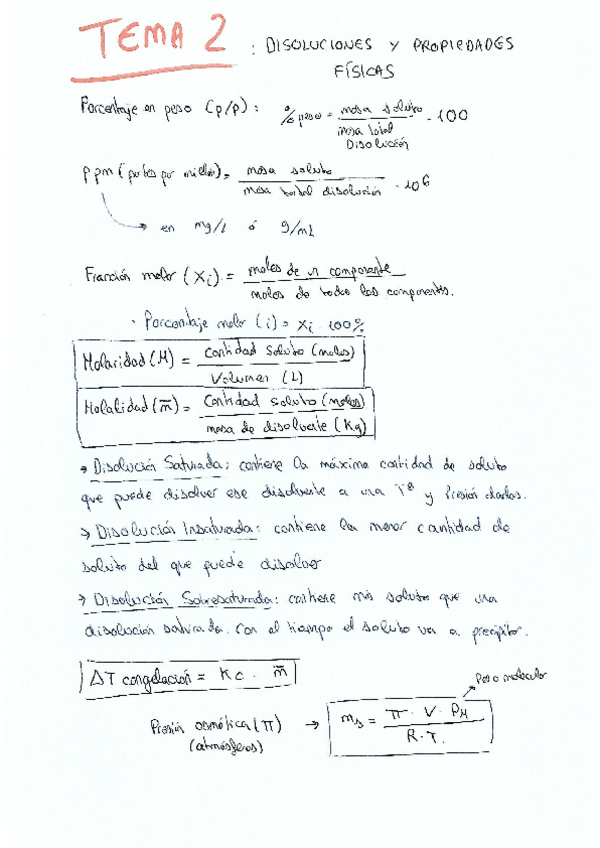 TEMA 2 : DISOLUCIONES Y PROPIEDADES
FÍSICAS
Porcentaje en peso (p/p) : % peso = masa soluto / masa total Disolución · 100
ppm (partes por millón) = masa soluto / masa total disolución · 10⁶
→ en mg/L ó g/mL
Fracción molar (Xi) = moles de un componente / moles de todos los componentes.
· Porcentaje molar (i) = Xi · 100%
Molaridad (M) = Cantidad soluto (moles) / Volumen (L)
Molalidad (m̄) = Cantidad soluto (moles) / masa de disolvente (Kg)
→ Disolución Saturada: contiene la máxima cantidad de soluto
que puede disolver ese disolvente a una Tª y Presión dadas.
→ Disolución Insaturada: contiene la menor cantidad de
soluto del que puede disolver
→ Disolución Sobresaturada: contiene más soluto que una
disolución saturada. Con el tiempo el soluto va a precipitar.
ΔT congelación = Kc · m̄
Peso molecular
Presión osmótica (π) → ms = π · V · PM / R · T.
(atmósferas)